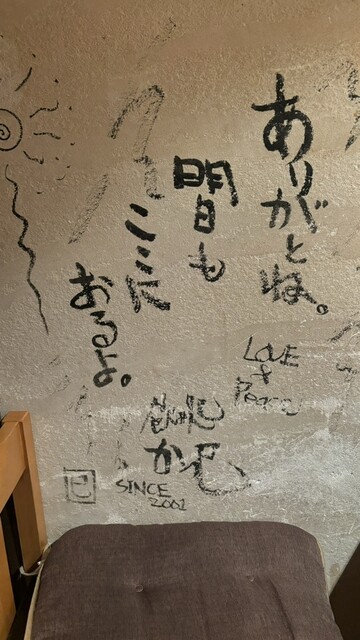 ありがとね。
明日も
ここに
おるよ。
LOVE
+
Peace
SINCE
2001